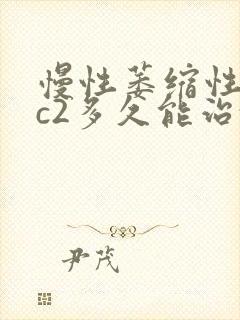 慢性萎缩性
c2多久能治
尹茂